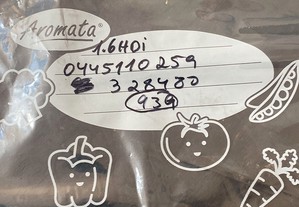 Aromata®
1.6HDi
0445110259
328480
939